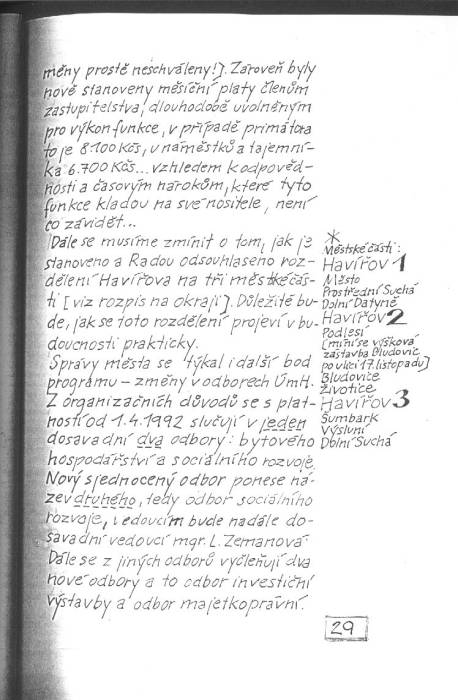 měny prostě neschváleny!]. Zároveň byly
nově stanoveny měsíční platy členům
zastupitelstva, dlouhodobě uvolněným
pro výkon funkce, v případě primátora
to je 8.100 Kčs, u náměstků a tajemní-
ka 6.700 Kčs... vzhledem k odpověd-
nosti a časovým nárokům, které tyto
funkce kladou na své nositele, není
co závidět...
Dále se musíme zmínit o tom, jak je
stanoveno a Radou odsouhlaseno roz-
dělení Havířova na tři městské čás-
ti [viz rozpis na okraji]. Důležité bu-
de, jak se toto rozdělení projeví v bu-
doucnosti prakticky.
Správy města se týkal i další bod
programu – změny v odborech ÚmH.
Z organizačních důvodů se s plat-
ností od 1.4.1992 slučují v jeden
dosavadní dva odbory: bytového
hospodářství a sociálního rozvoje.
Nový sjednocený odbor ponese ná-
zev druhého, tedy odbor sociálního
rozvoje, vedoucím bude nadále do-
savadní vedoucí mgr. L. Zemanová.
Dále se z jiných odborů vyčleňují dva
nové odbory a to odbor investiční
výstavby a odbor majetkoprávní.
*
Městské části:
Havířov 1
Město
Prostřední Suchá
Dolní Datyně
Havířov 2
Podlesí
[míní se výšková
zástavba Bludovic
po ulici 17. listopadu]
Bludovice
Životice
Havířov 3
Šumbark
Výsluní
Dolní Suchá
29